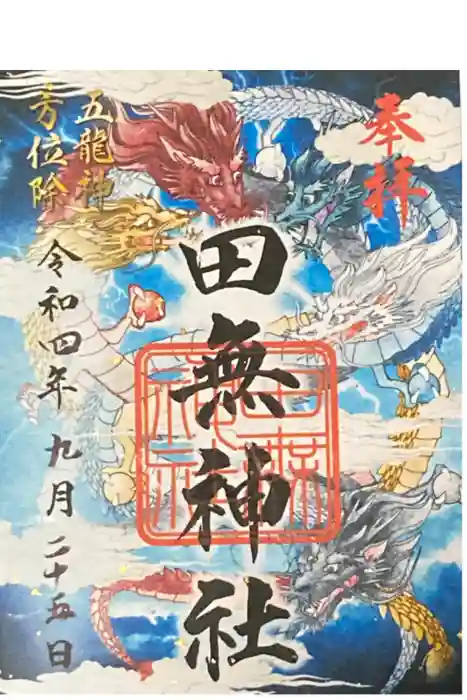 奉拝
田無神社
五龍神
方位除
令和四年九月二十五日
田無神社